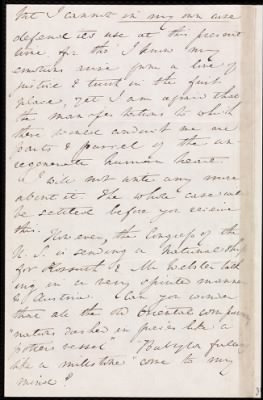 but I cannot in my own case
defend its use at this present
time, for tho' I know my
emotions rise from a love of
justice & truth in the first
place, yet I am afraid that
the manifestations to which
these would conduct me are
parts & parcel of the un-
regenerate human heart.
I will not write any more
about it. The whole case will
be settled before you receive
this.
However, the Congress of the
U. S. is sending a National Ship
for Kossuth & Mr Webster talk
ing in a very spirited manner
to Austria. Can you wonder
that all the old Oriental
"nations dashed in pieces like a
potters vessel" "Babylon fallen
like a millstone" come to my
mind?